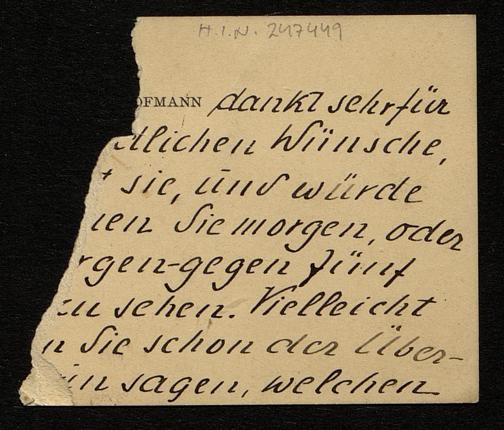 H.I.N. 247449
OFMANN dankt sehr für
dlichen Wünsche,
t sie, und würde
nen Sie morgen, oder
rgen-gegen fünf
zu sehen. Vielleicht
n Sie schon der Über-
in sagen, welchen